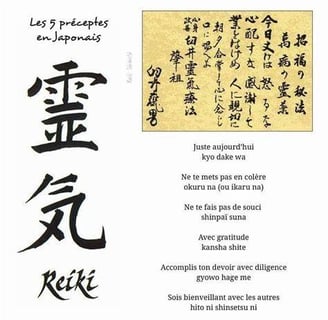 Les 5 préceptes
en Japonais
靈
気
Reiki
招福の秘法
萬病の霊薬
今日丈けは 怒るな
心配すな 感謝して
業をはげめ 人に親切に
朝夕合掌して心に念じ
口に唱へよ
臼井靈氣療法
肇祖
臼井甕男
Juste aujourd'hui
kyo dake wa
Ne te mets pas en colère
okuru na (ou ikaru na)
Ne te fais pas de souci
shinpaï suna
Avec gratitude
kansha shite
Accomplis ton devoir avec diligence
gyowo hage me
Sois bienveillant avec les autres
hito ni shinsetsu ni